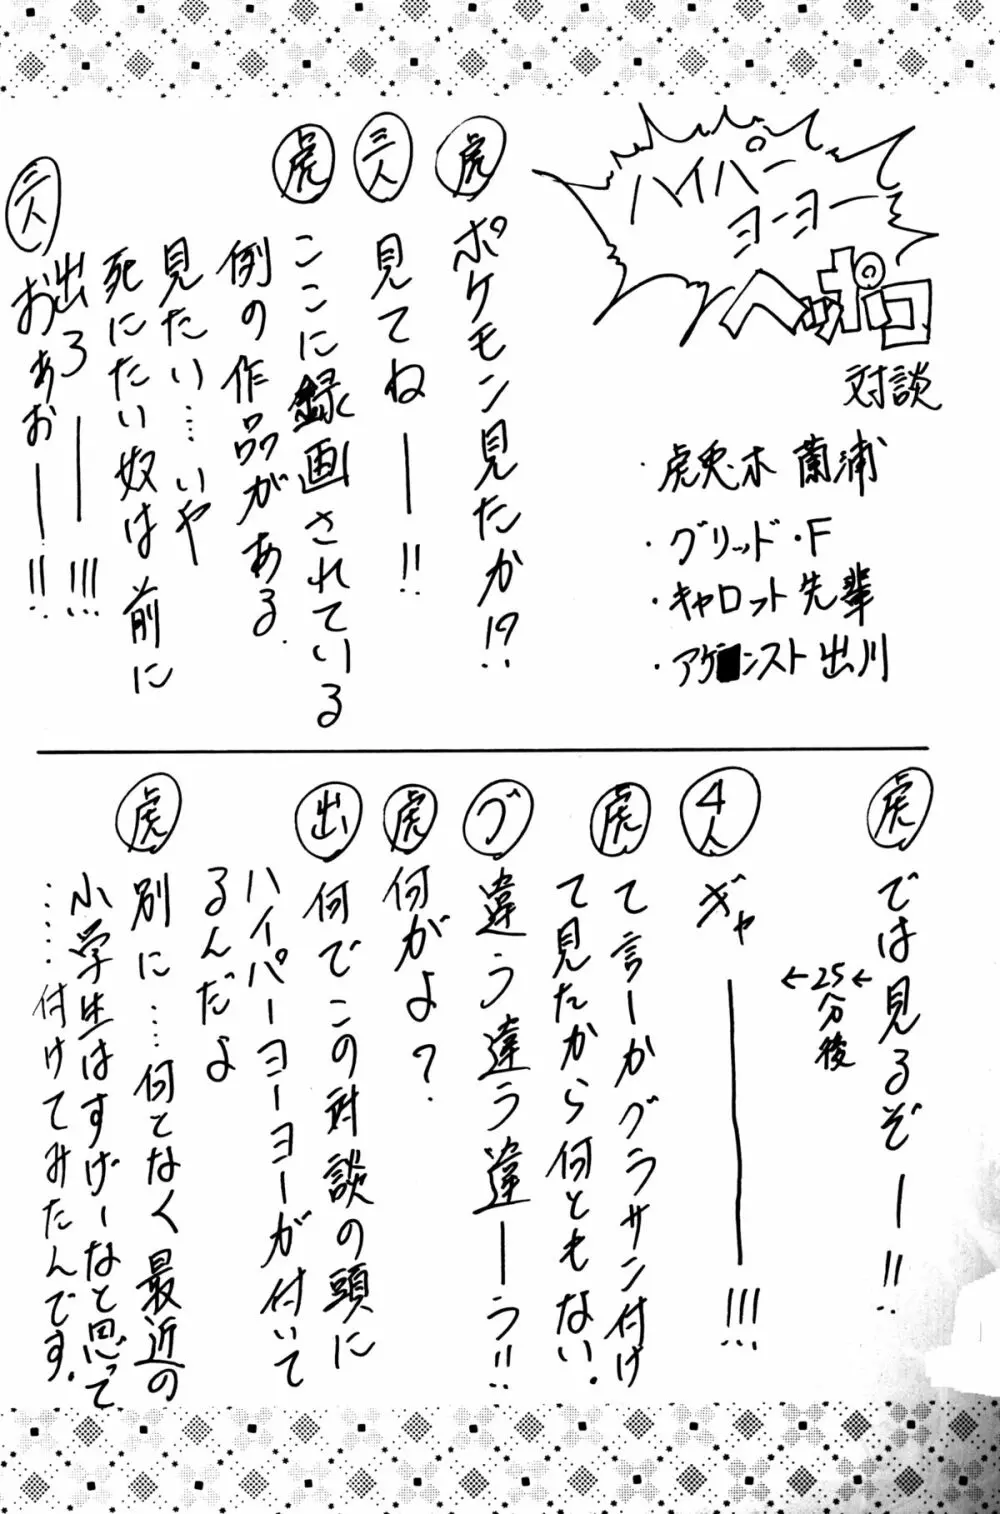 ハイパー
ヨーヨー
へっポコ
対談
・虎兎木 蘭浦
・グリッド・F
・キャロット先輩
・アゲンスト出川
虎 ポケモン見たか!?
三人 見てねーー!!
虎 ここに録画されている
例の作品がある.
見たい……いや
死にたい奴は前に
出ろーー!!!
三人 おぉおーー!!
虎 では見るぞー!!
←25分後←
4人 ギャーーー!!!
虎 て言ーかグラサン付け
て見たから何ともない.
グ 違う違う違ーう!!
虎 何がよ?
出 何でこの対談の頭に
ハイパーヨーヨーが付いて
るんだよ
虎 別に……何となく最近の
小学生はすげーなと思って
……付けてみたんです.